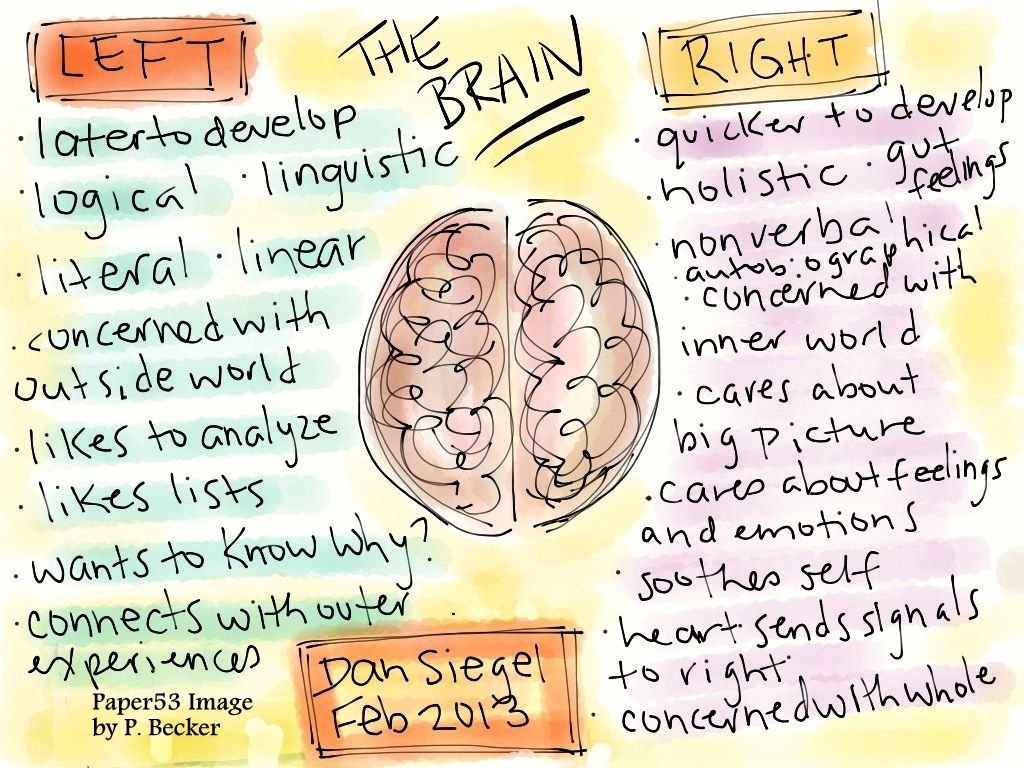 THE
BRAIN
LEFT
· later to develop
· logical · linguistic
· literal · linear
· concerned with
outside world
· likes to analyze
· likes lists
· wants to know why?
· connects with outer
experiences
RIGHT
· quicker to develop
· holistic · gut
feelings
· nonverbal
· autobiographical
· concerned with
inner world
· cares about
big picture
· cares about feelings
and emotions
· soothes self
· heart sends signals
to right
· concerned with whole
Dan Siegel
Feb 2013
Paper53 Image
by P. Becker